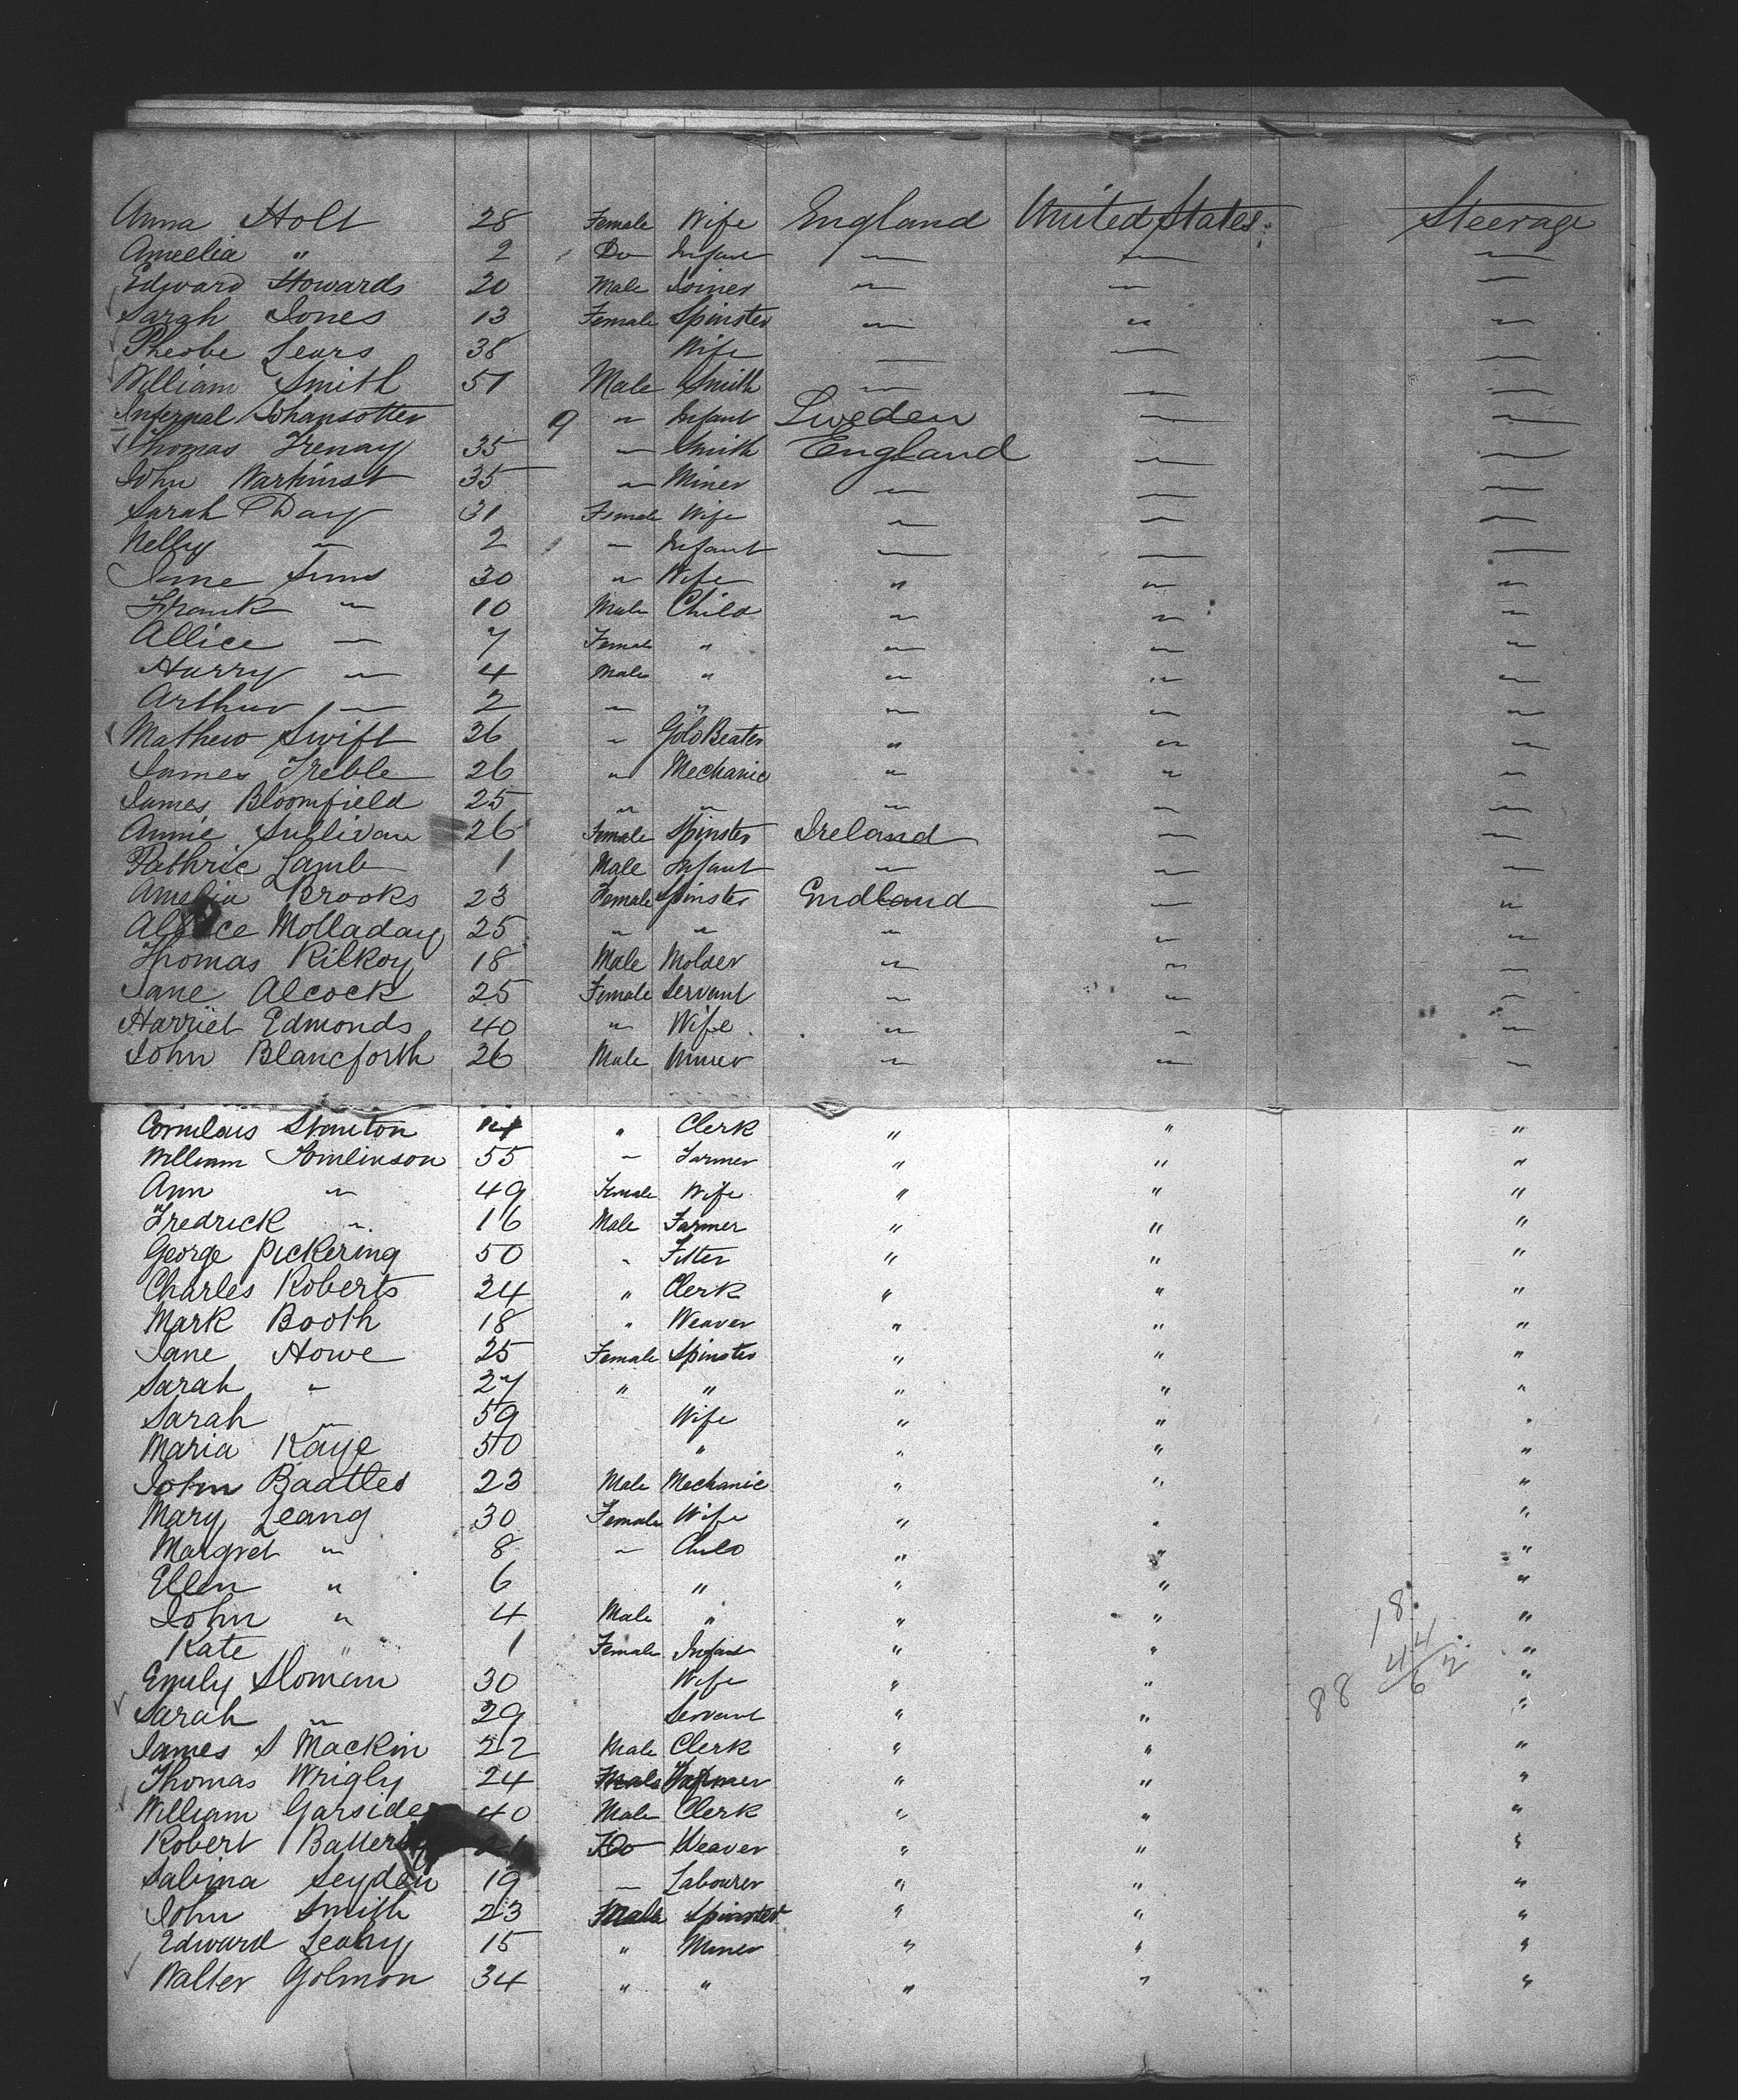 Anna Holt 28 Female Wife England United States. Steerage
Amelia " 2 Do Infant — — —
Edward Howards 20 Male Joiner — — —
Sarah Jones 13 Female Spinster — " —
Pheobe Sears 38 Wife — — —
William Smith 51 Male Smith — — —
Infernal Johansotter 9 " Infant Sweden — —
Thomas Trenay 35 — Smith England — —
John Warhurst 35 " Miner — — —
Sarah Day 31 Female Wife — — —
Nelly — 2 — Infant — — —
Jane Sims 30 " Wife " " "
Frank — 10 Male Child — — —
Allice — 7 Female " — — —
Harry — 4 Male " — — —
Arthur — 2 — " — — —
Mathew Swift 26 " Gold Beater " " "
James Treble 26 " Mechanic " " "
James Bloomfield 25 " " — — —
Annie Sullivan 26 Female Spinster Ireland — —
Pathric Lamb 1 Male Infant — — —
Amelia Brooks 23 Female Spinster Endland — "
Alice Molladay 25 " " " — —
Thomas Kilkoy 18 Male Molder — — —
Jane Alcock 25 Female Servant — — —
Harriet Edmonds 40 " Wife — — —
John Blancforth 26 Male Miner — — —
Cornilous Stanton " Clerk " " "
William Tomlinson 55 — Farmer " " "
Ann " 49 Female Wife " " "
Fredrick " 16 Male Farmer " " "
George Pickering 50 " Fitter " " "
Charles Roberts 24 " Clerk " " "
Mark Booth 18 " Weaver " " "
Jane Howe 25 Female Spinster " " "
Sarah " 27 " " " " "
Sarah — 59 Wife " " "
Maria Kaye 50 " " " "
John Baattles 23 Male Mechanic " " "
Mary Leang 30 Female Wife " " "
Margret " 8 — Child " " "
Ellen " 6 " " " "
John " 4 Male " " " "
Kate " 1 Female Infant " " "
Emily Sloman 30 Wife " " "
Sarah — 29 Servant " " "
James S Mackin 22 Male Clerk " " "
Thomas Wrigly 24 Male Farmer " " "
William Garside 40 Male Clerk " " "
Robert 21 Do Weaver " " "
Sabina Seyden 19 — Labourer " " "
John Smith 23 Male Spinster " " "
Edward Leahy 15 " Miner " " "
Walter Golmon 34 " " " " "
18
88